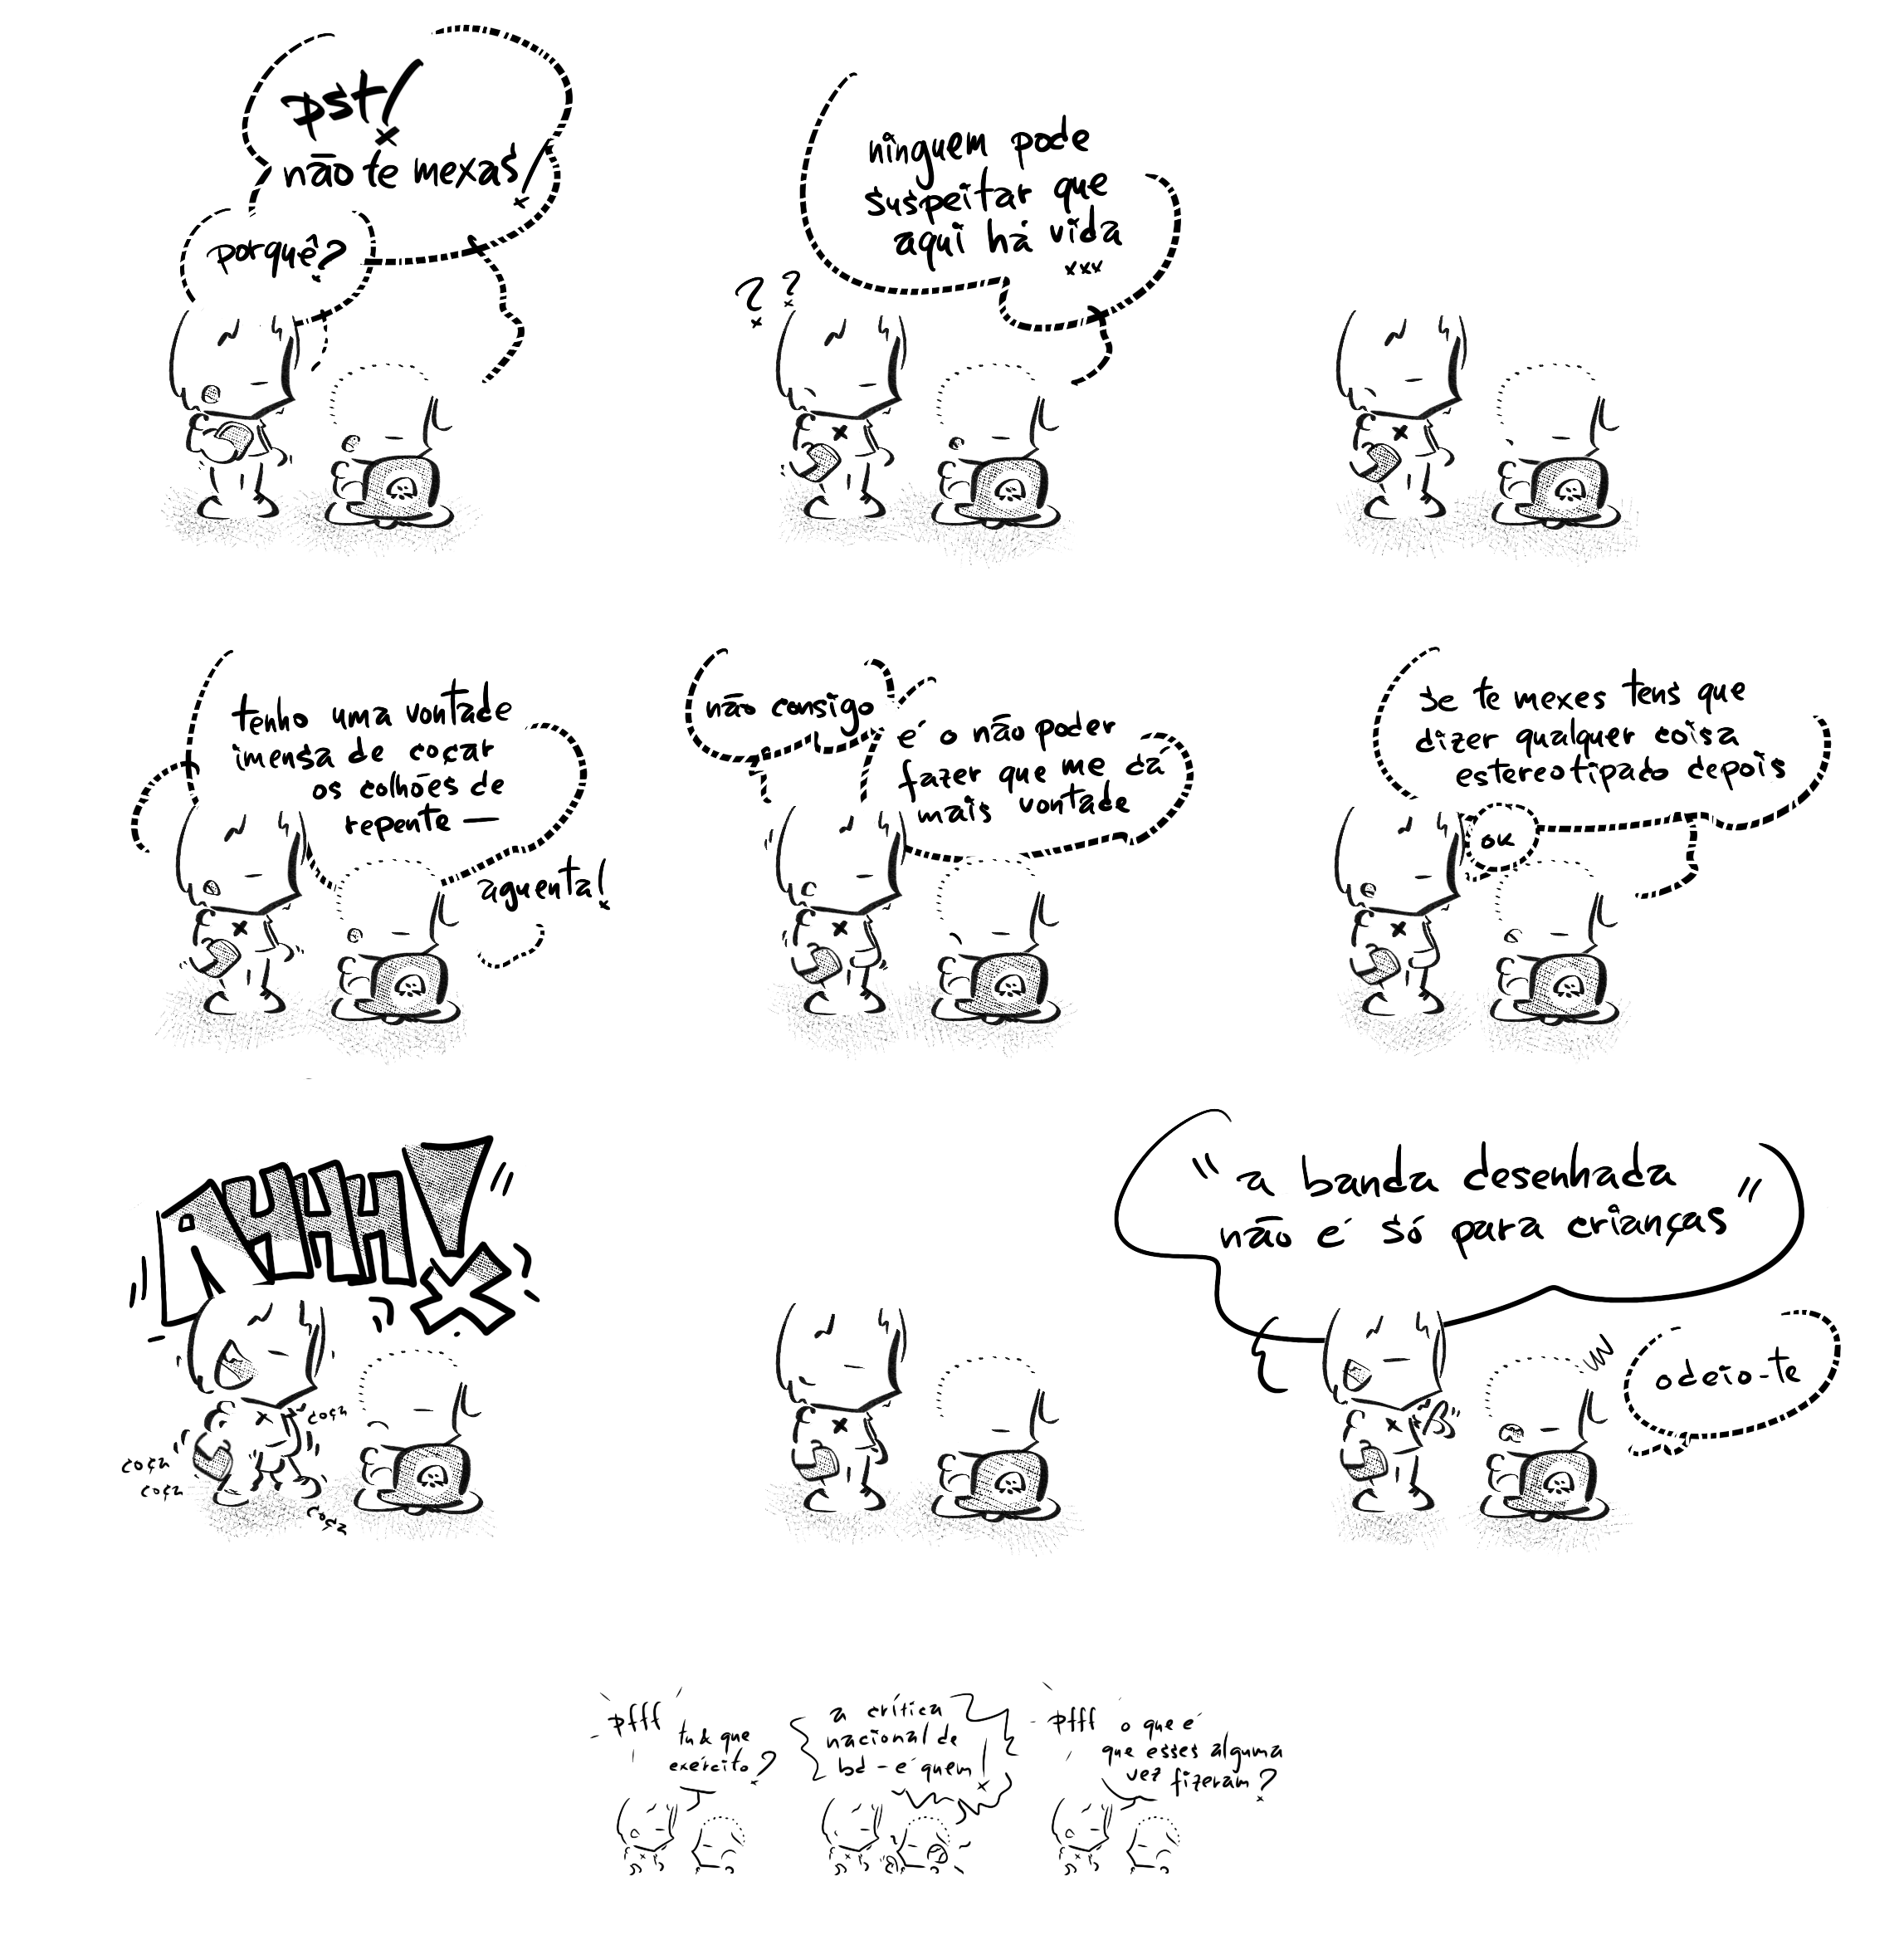 pst!
não te mexas!
porquê?
ninguem pode
suspeitar que
aqui há vida
xxx
? ?
tenho uma vontade
imensa de coçar
os colhões de
repente —
aguenta!
não consigo
é o não poder
fazer que me dá
mais vontade
se te mexes tens que
dizer qualquer coisa
estereotipado depois
ok
AHHH!
coça
coça
coça
coça
"a banda desenhada
não é só para crianças"
odeio-te
pfff
tu & que
exército?
a crítica
nacional de
bd - é quem!
pfff o que é
que esses alguma
vez fizeram?